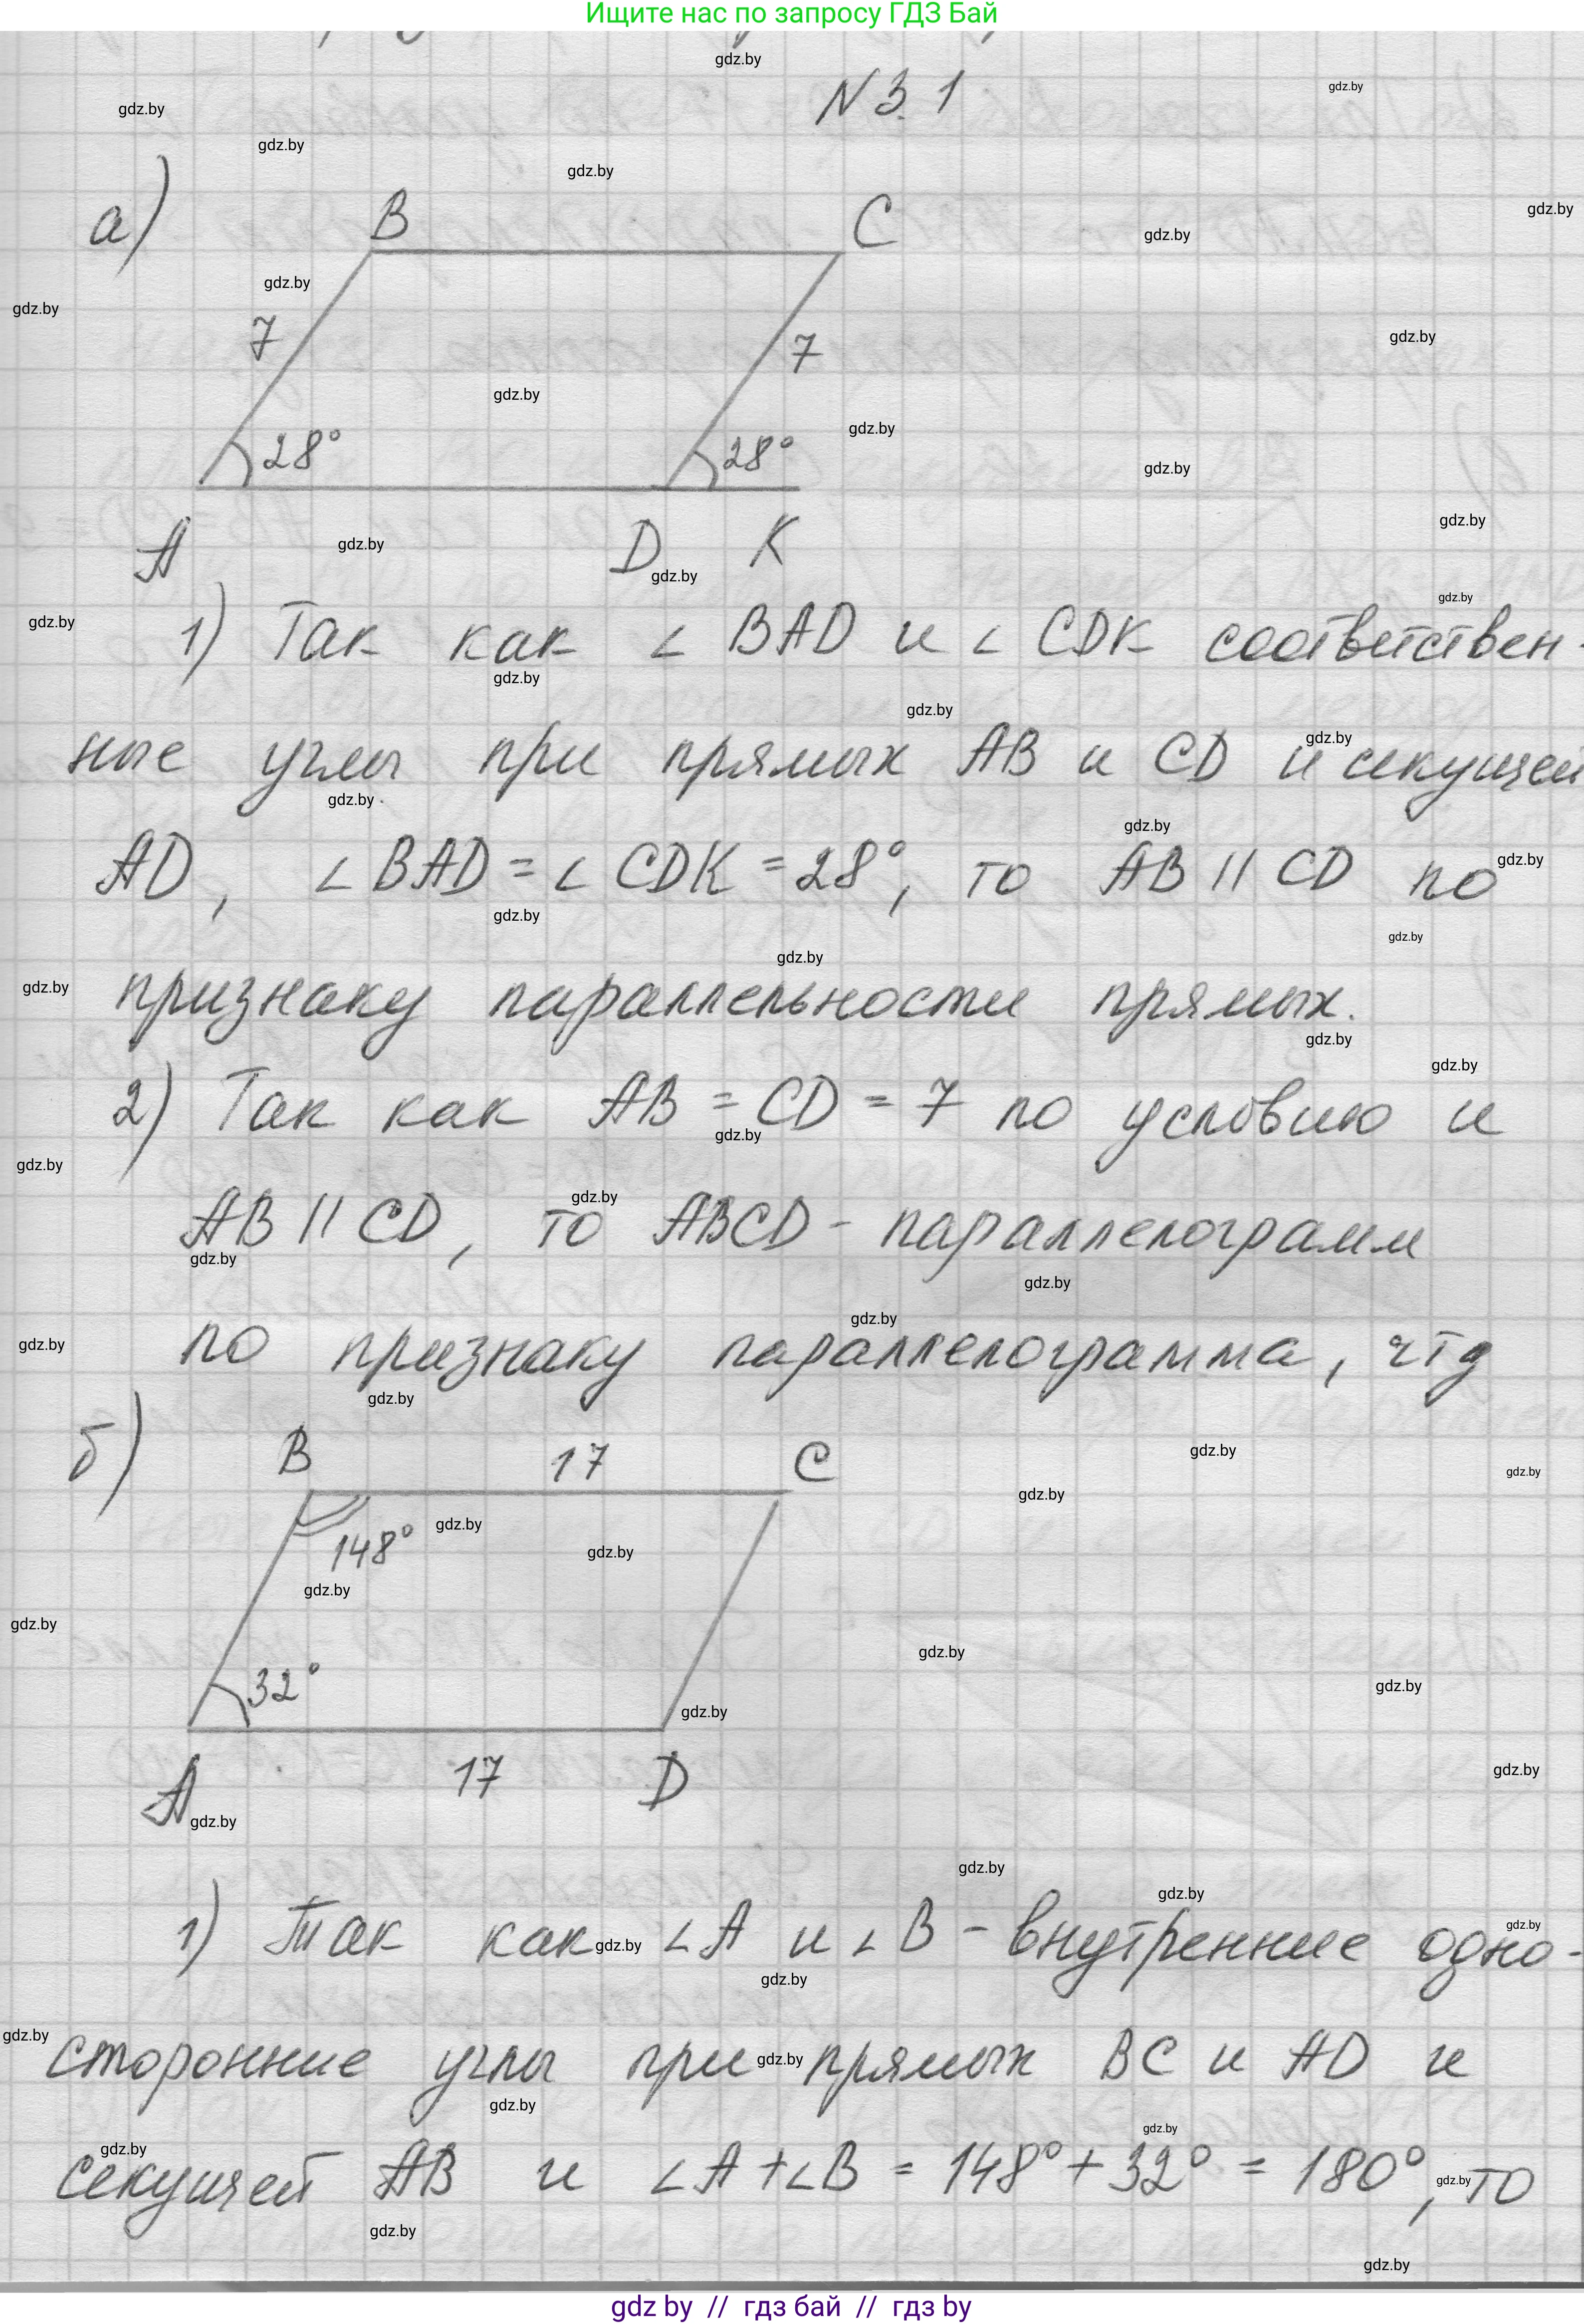 Ищите нас по запросу ГДЗ Бай
N 3.1
а)
B C
7 7
28° 28°
A D K
1) Так как ∠ BAD и ∠ CDK соответствен-
ные углы при прямых AB и CD и секущей
AD, ∠ BAD = ∠ CDK = 28°, то AB || CD по
признаку параллельности прямых.
2) Так как AB = CD = 7 по условию и
AB || CD, то ABCD - параллелограмм
по признаку параллелограмма, чтд
б)
B 17 C
148°
32°
A 17 D
1) Так как ∠A и ∠B - внутренние одно-
сторонние углы при прямых BC и AD и
секущей AB и ∠A + ∠B = 148° + 32° = 180°, то
gdz by // гдз бай // гдз by